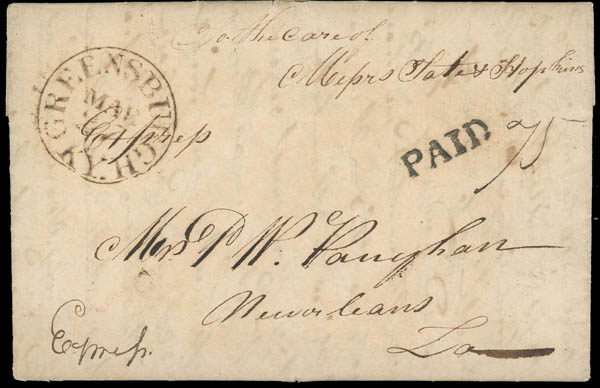 To the care of
Messrs Tate & Hopkins
GREENSBURGH. KY
MAR
Express
PAID 75
Mrs P. W. Vaughan
Neworleans
La
Express.